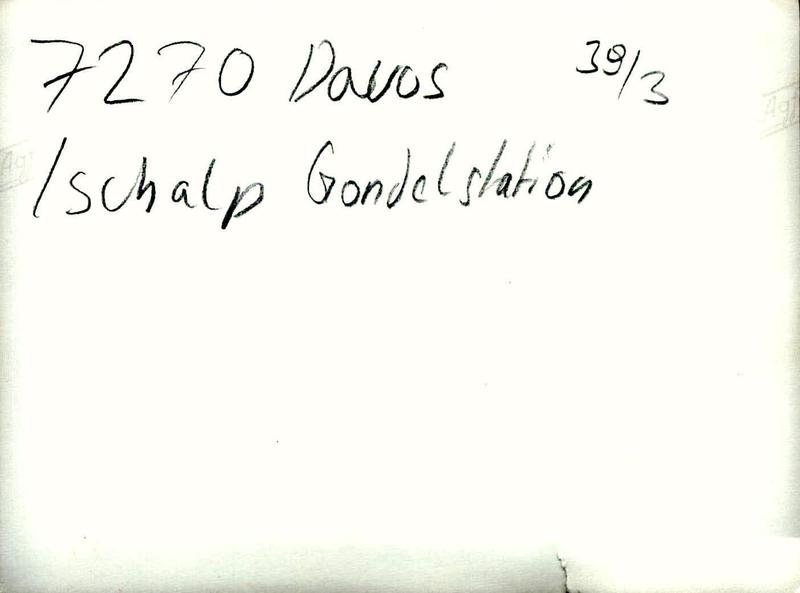 7270 Davos 39/3
Ischalp Gondelstation